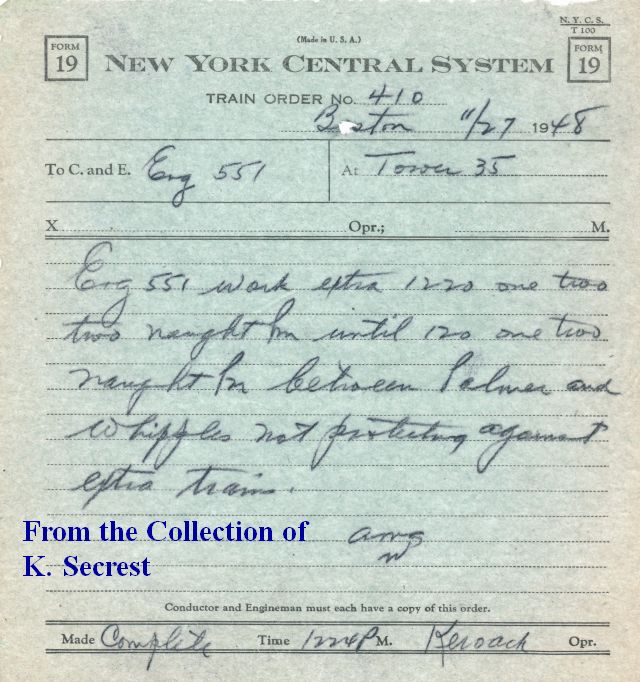 N. Y. C. S.
T 100
(Made in U. S. A.)
FORM 19
NEW YORK CENTRAL SYSTEM
FORM 19
TRAIN ORDER No. 410
Boston 11/27 1948
To C. and E. Eng 551 At Tower 35
X Opr.; M.
Eng 551 work extra 1220 one two
two naught Pm until 120 one two
naught Pm between Palmer and
Whipples not protecting against
extra trains.
From the Collection of
K. Secrest
Conductor and Engineman must each have a copy of this order.
Made Complete Time 1224P M. Keroack Opr.